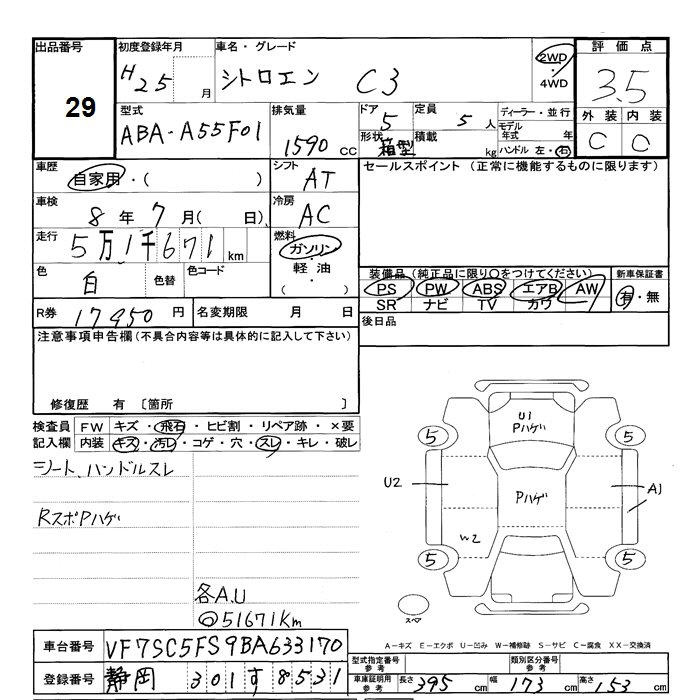 出品番号
29
初度登録年月
H25 月
車名・グレード
シトロエン C3
2WD
4WD
評価点
3.5
外装 内装
C C
型式
ABA-A55F01
排気量
1590 CC
ドア
5
形状
箱型
定員
5 人
積載
kg
ディーラー・並行
モデル年式 年
ハンドル 左・右
車歴
自家用・( )
シフト
AT
セールスポイント (正常に機能するものに限ります)
車検
8 年 7 月( 日)
冷房
AC
走行
5万1千671 km
燃料
ガソリン
軽油
( ・ )
色
白
色替
色コード
装備品 (純正品に限り○をつけてください)
PS PW ABS エアB AW
SR ナビ TV カワ
新車保証書
有・無
R券 17950 円
名変期限 月 日
後日品
注意事項申告欄(不具合内容等は具体的に記入して下さい)
修復歴 有 〔箇所 〕
検査員記入欄
FW キズ・飛石・ヒビ割・リペア跡・×要
内装 キズ・汚レ・コゲ・穴・スレ・キレ・破レ
シート、ハンドルスレ
RスポPハゲ
各A.U
◎51671Km
U1
Pハゲ
5 5
U2
Pハゲ
A1
W2
5 5
スペア
A-キズ E-エクボ U-凹み W-補修跡 S-サビ C-腐食 XX-交換済
車台番号 VF7SC5FS9BA633170
登録番号 静岡 301 す 8531
型式指定番号 参考
類別区分番号 参考
車庫証明用 参考
長さ 395 cm 幅 173 cm 高さ 153 cm